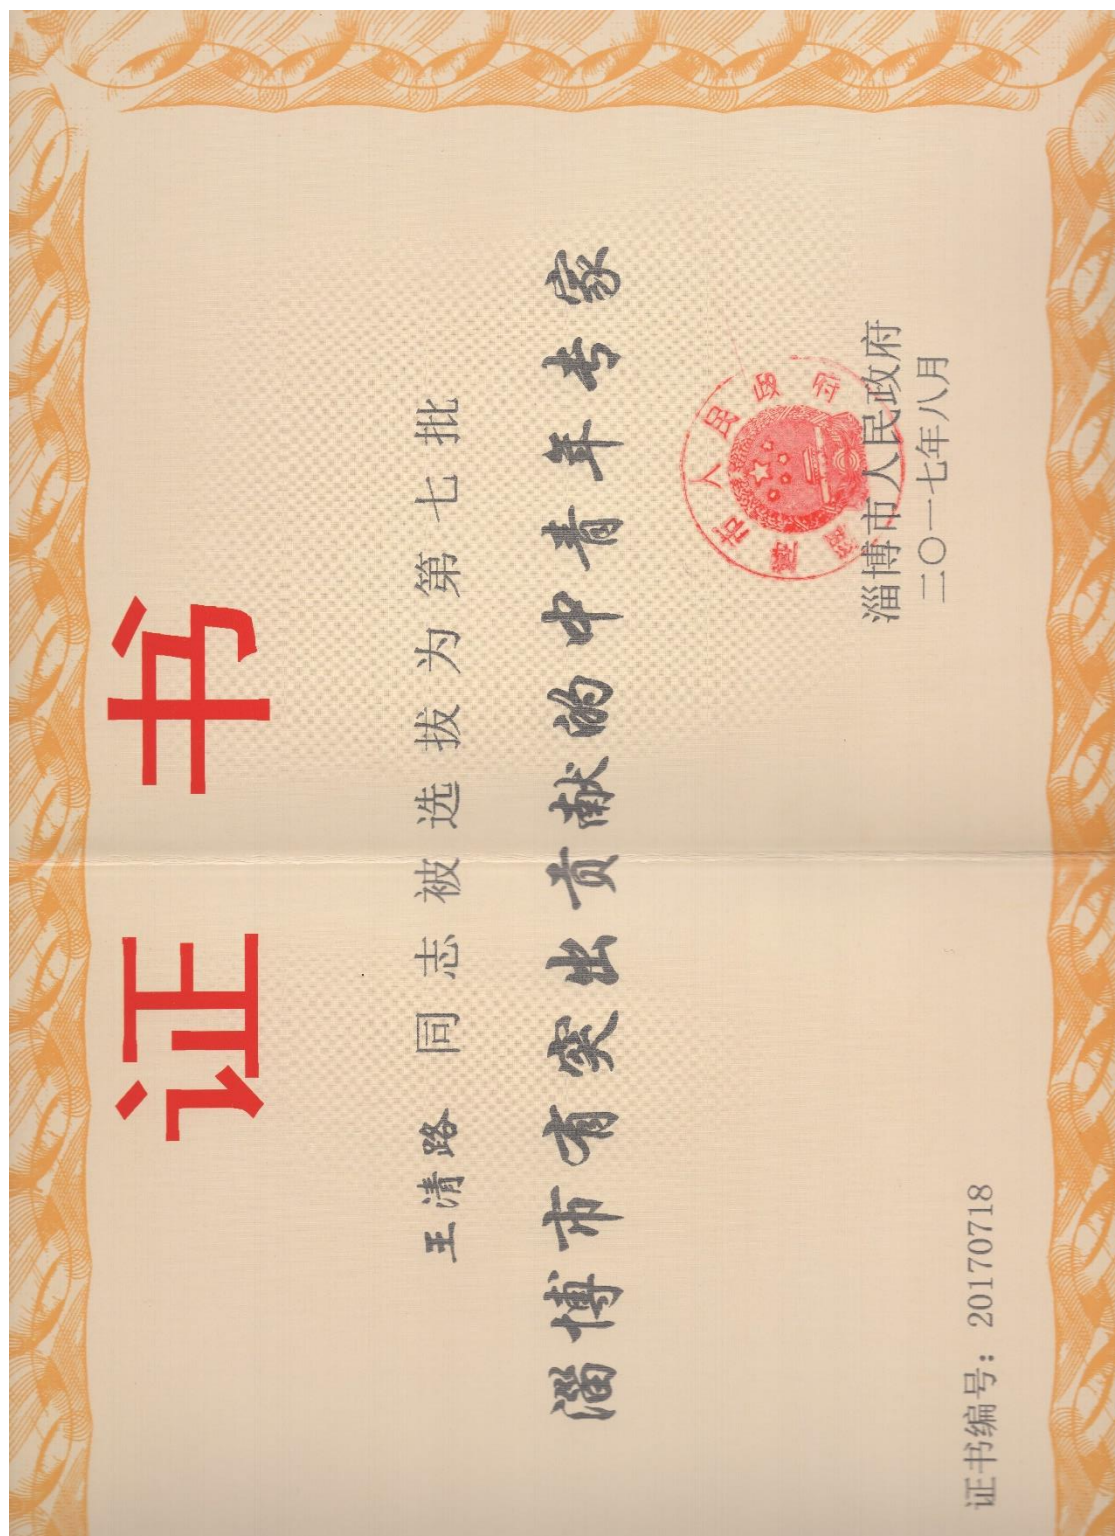 证书
王清路 同志被选拔为第七批
淄博市有突出贡献的中青年专家
淄博市人民政府
淄博市人民政府
二〇一七年八月
证书编号：20170718